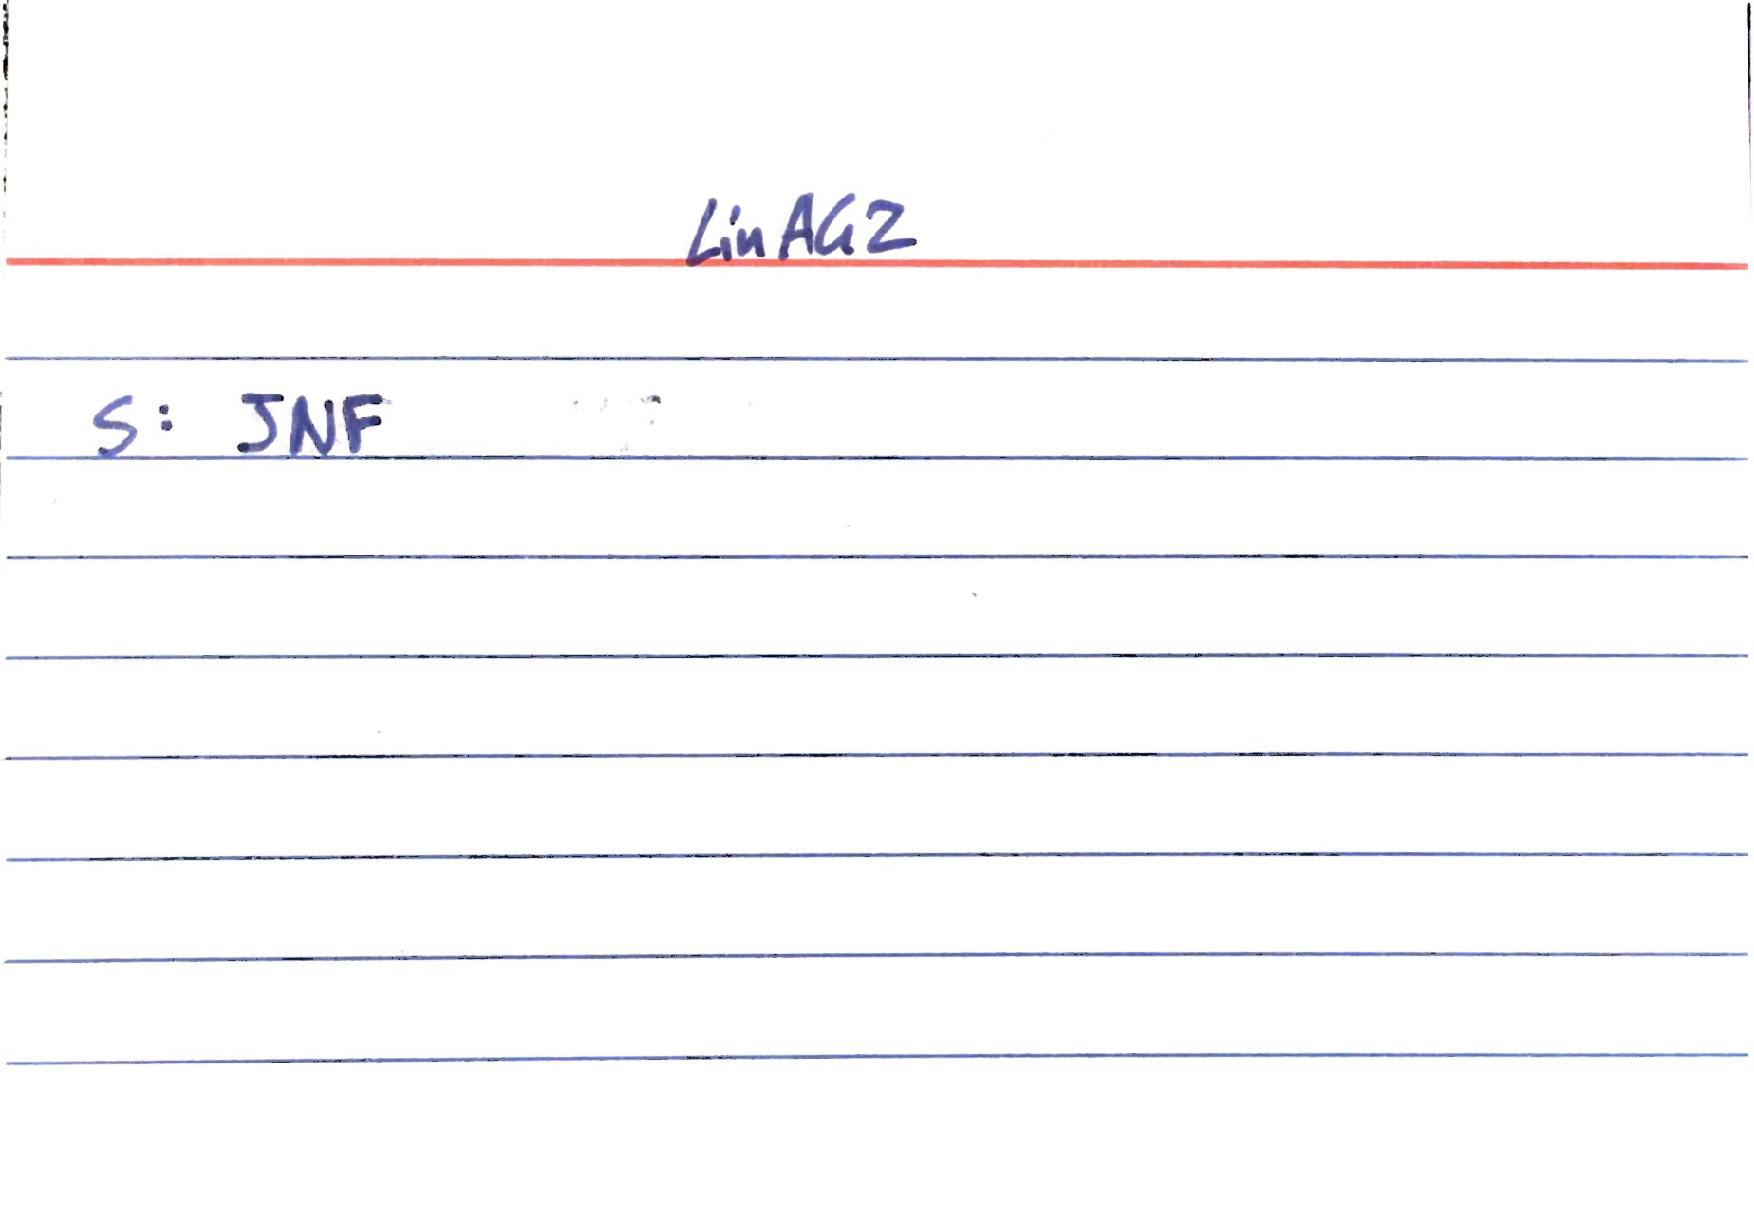 LinAG2
S: JNF